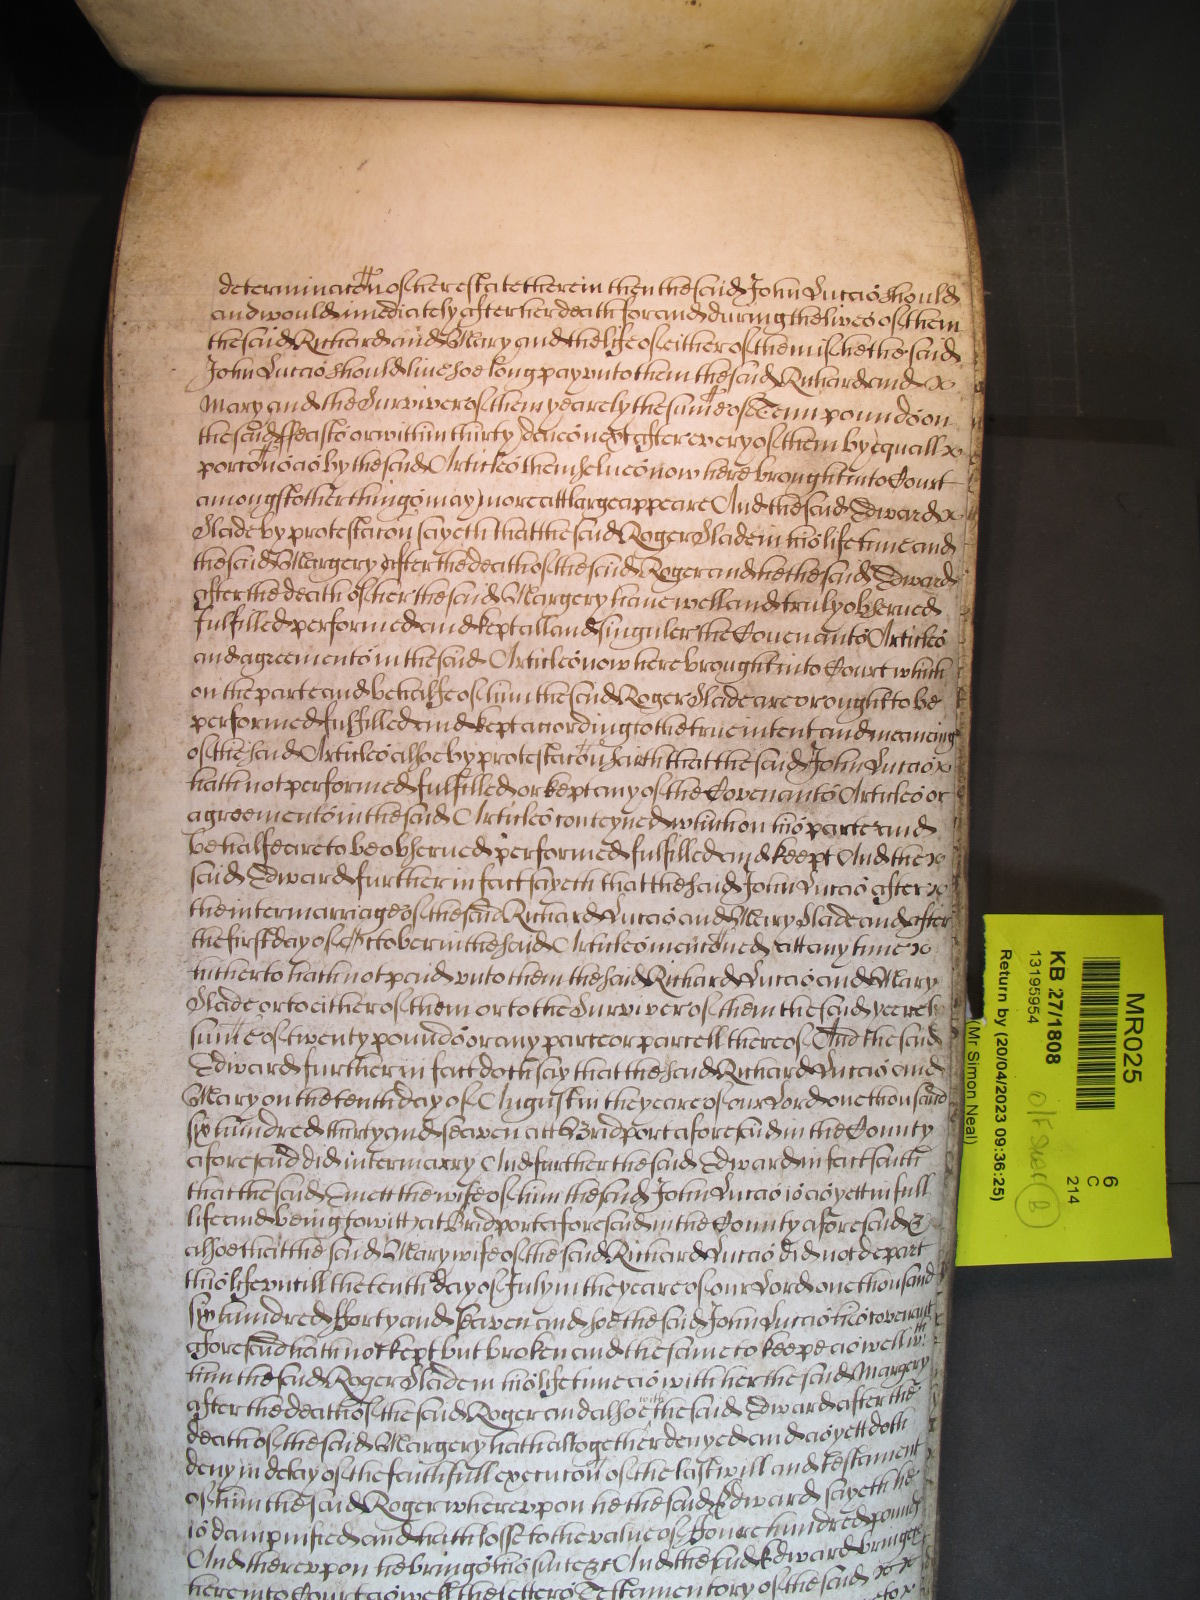 determinac̃on of her estate therein then the said John Luccas should
and would imediately after her death for and during the lives of them
the said Richard and Mary and the life of either of them if he the said
John Luccas should live soe long pay unto them the said Richard and
Mary and the Surviver of them yearely the sum̃e of Tenn pounds on
the said ffeasts or within thirty daies next after every of them by equall
porc̃ons as by the said Articles themselues now here brought into Court
amongst other things may more att large appeare And the said Edward
Slade by protestac̃on sayeth that the said Roger Slade in his life time and
the said Margery after the death of the said Roger and he the said Edward
after the death of her the said Margery haue well and truly obserued
fulfilled performed and kept all and singuler the Couenants Articles
and agreements in the said Articles now here brought into Court which
on the parte and behalfe of him the said Roger Slade are or ought to be
performed fulfilled and kept according to the true intent and meaning
of the said Articles alsoe by protestac̃on saith that the said John Luccas
hath not performed fulfilled or kept any of the Covenants Articles or
agreements in the said Articles conteyned which on his parte and
behalfe are to be obserued performed fulfilled and kept And the
said Edward further in fact sayeth that the said John Luccas after
the intermarriage of the said Richard Luccas and Mary Slade and after
the first day of October in the said Articles menc̃oned att any time
hitherto hath not paid unto them the said Richard Luccas and Mary
Slade or to either of them or to the Surviver of them the said yearely
sum̃e of twenty pounds or any parte or parcell thereof And the said
Edward further in fact doth say that the said Richard Luccas and
Mary on the tenth day of August in the yeare of our Lord one thousand
six hundred thirty and seaven att Bridport aforesaid in the County
aforesaid did intermarry And further the said Edward in fact saith
that the said Emett the wife of him the said John Luccas is as yett in full
life and being to witt at Bridport aforesaid in the County aforesaid &
alsoe that the said Mary wife of the said Richard Luccas did not depart
this life untill the tenth day of July in the yeare of our Lord one thousand
six hundred fforty and seaven and soe the said John Luccas his covenant
aforesaid hath not kept but broken and the same to keepe as well wth
him the said Roger Slade in his life time as with her the said Margery
after the death of the said Roger and alsoe with the said Edward after the
death of the said Margery hath altogether denyed and as yett doth
deny in delay of the faithfull execuc̃on of the last will and testament
of him the said Roger whereupon he the said Edward sayeth he
is dampnified and hath losse to the value of ffoure hundred pounds
And thereupon he brings his suite &c And the said Edward brings
here into Court as well the letters Testamentory of the said
MR025
6
C
214
KB 27/1808
13195954
Return by (20/04/2023 09:36:25)
(Mr Simon Neal)